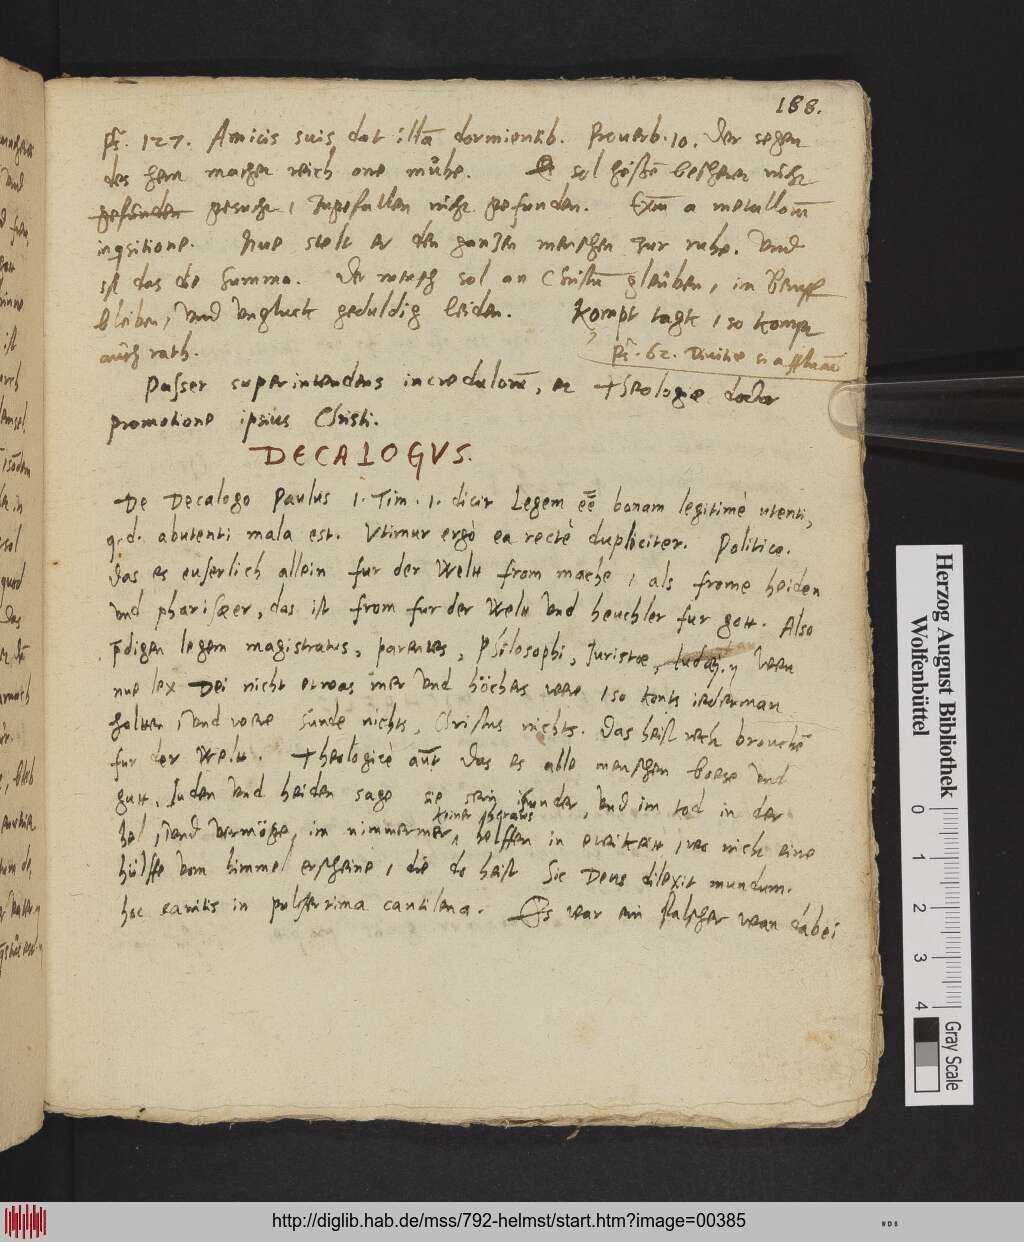 188.
Ps. 127. Amicis suis dat illā dormientib. Proverb. 10. Der segen
des hern machen reich one můhe. Er sol heissē bescheren nicht
gefunden gesucht, zugefallen nicht gefunden. Exm a metallorū
inqsitione. Nue stelt er den ganzen menschen zur ruhe. Vnd
ist das die summa. Der mensch sol an Christū glauben, im Beruff
bleiben, Vnd Vngluck geduldig leiden. Kompt tagk, so kompt
auch rath.
Ps. 62. Divitie si affluāt
Passer superintendens incredulorū, et Theologiæ doctor
promotione ipsius Christi.
DECALOGVS.
De Decalogo Paulus 1. Tim. 1. dicit Legem ēē bonam legitimè utenti,
q.d. abutenti mala est. Vtimur ergò ea rectè dupliciter. Politice.
Das es euserlich allein fur der Welt from mache, als frome heiden
Vnd pharisæer, das ist from fur der Welt Vnd heuchler fur gott. Also
p̄digen legem magistratus, parentes, Philosophi, Iuristæ, Wen
nue lex Dei nicht etwas mer Vnd höchers were, so konts iederman
halten, Vnd were Sunde nichts, Christus nichts. Das heist recht brouchē
fur der Welt. Theologicè aūt Das es alle menschen boese Vnd
gutt, Iuden Vnd heiden sage sie sein sunder, Vnd im tod in der
keiner
hel, Vnd Vermöge, im nimmermer, helffen in ewikeit, wo nicht eine
hülffe Vom himmel erscheine, die do heist Sic Deus dilexit mundum.
hoc canitis in pulcherrima cantilena. Es war ein falscher wean dabei
Herzog August Bibliothek
Wolfenbüttel
0 1 2 3 4
Gray Scale
http://diglib.hab.de/mss/792-helmst/start.htm?image=00385